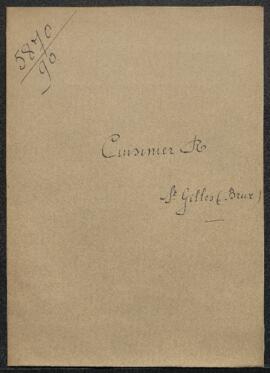 5870
90
Cuisinier R
St Gilles (Brux)